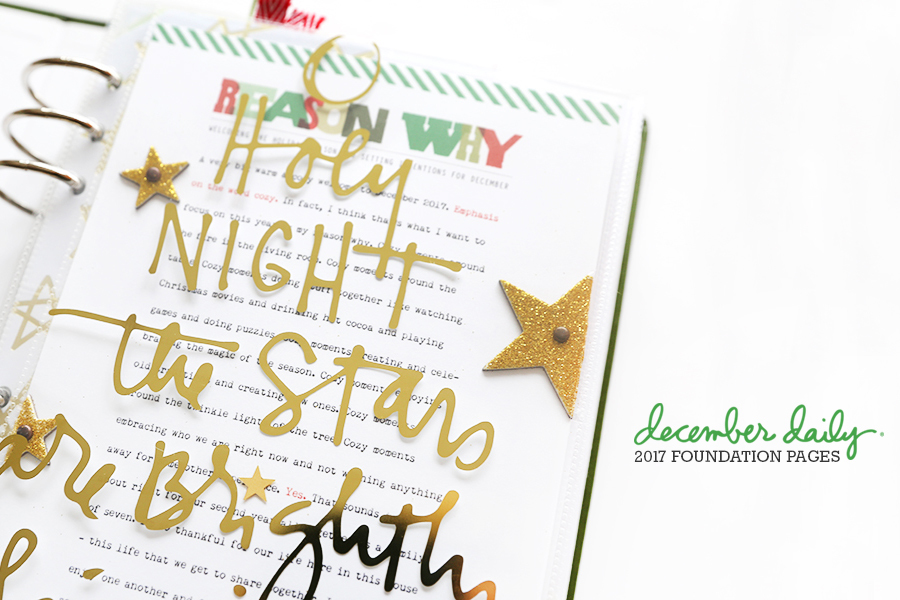 REASON WHY
WELCOMING THE HOLIDAY SEASON SETTING INTENTIONS FOR DECEMBER
A very big warm welcome to December 2017. Emphasis
on the word cozy. In fact, I think that's what I want to
focus on this year my reason why. Cozy moments around
the fire in the living room. Cozy moments around the
table. Cozy moments doing stuff together like watching
Christmas movies and drinking hot cocoa and playing
games and doing puzzles. Cozy moments creating and cele-
brating the magic of the season. Cozy moments enjoying
old traditions and creating new ones. Cozy moments
around the twinkle lights on the tree. Cozy moments
embracing who we are right now and not wishing anything
away for another Yes. That sounds
about right for our second year all together as a family
of seven. thankful for our life here in this house
- this life that we get to share together
enjoy one another and
Holy
NIGHT
the Stars
are Brightly
december daily
2017 FOUNDATION PAGES